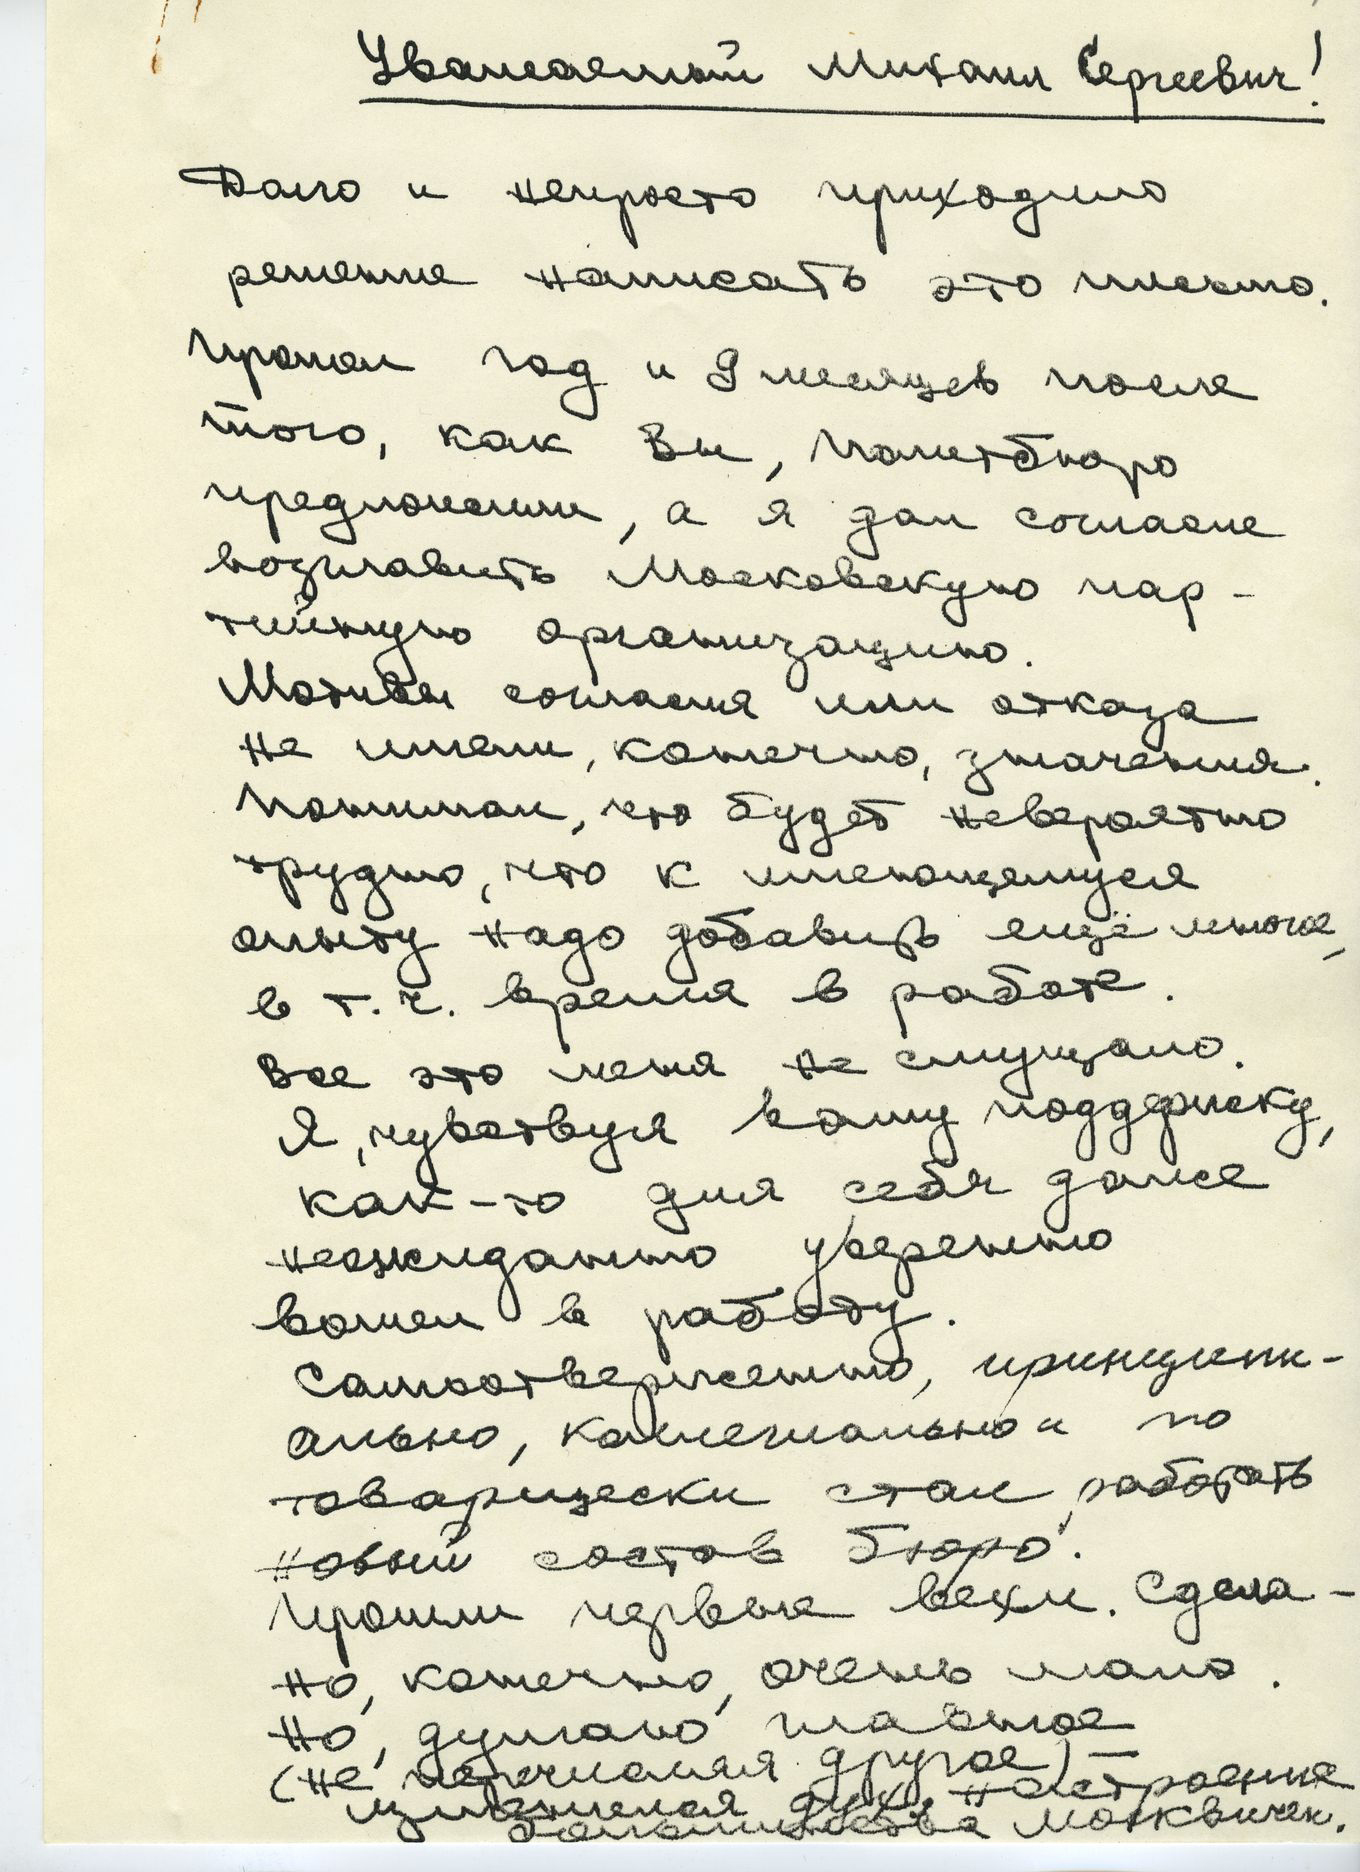 Уважаемый Михаил Сергеевич!
Долго и непросто приходило
решение написать это письмо.
Прошел год и 9 месяцев после
того, как Вы, Политбюро
предложили, а я дал согласие
возглавить Московскую пар-
тийную организацию.
Мотивы согласия или отказа
не имели, конечно, значения.
Понимал, что будет невероятно
трудно, что к имеющемуся
опыту надо добавить ещё многое,
в т.ч. время в работе.
Все это меня не смущало.
Я, чувствуя вашу поддержку,
как-то для себя даже
неожиданно уверенно
вошел в работу.
Самоотверженно, принципи-
ально, коллегиально и по
товарищески стал работать
новый состав бюро.
Прошли первые вехи. Сдела-
но, конечно, очень мало.
Но, думаю главное
(не перечисляя другое) –
изменился дух, настроение
большинства москвичей.